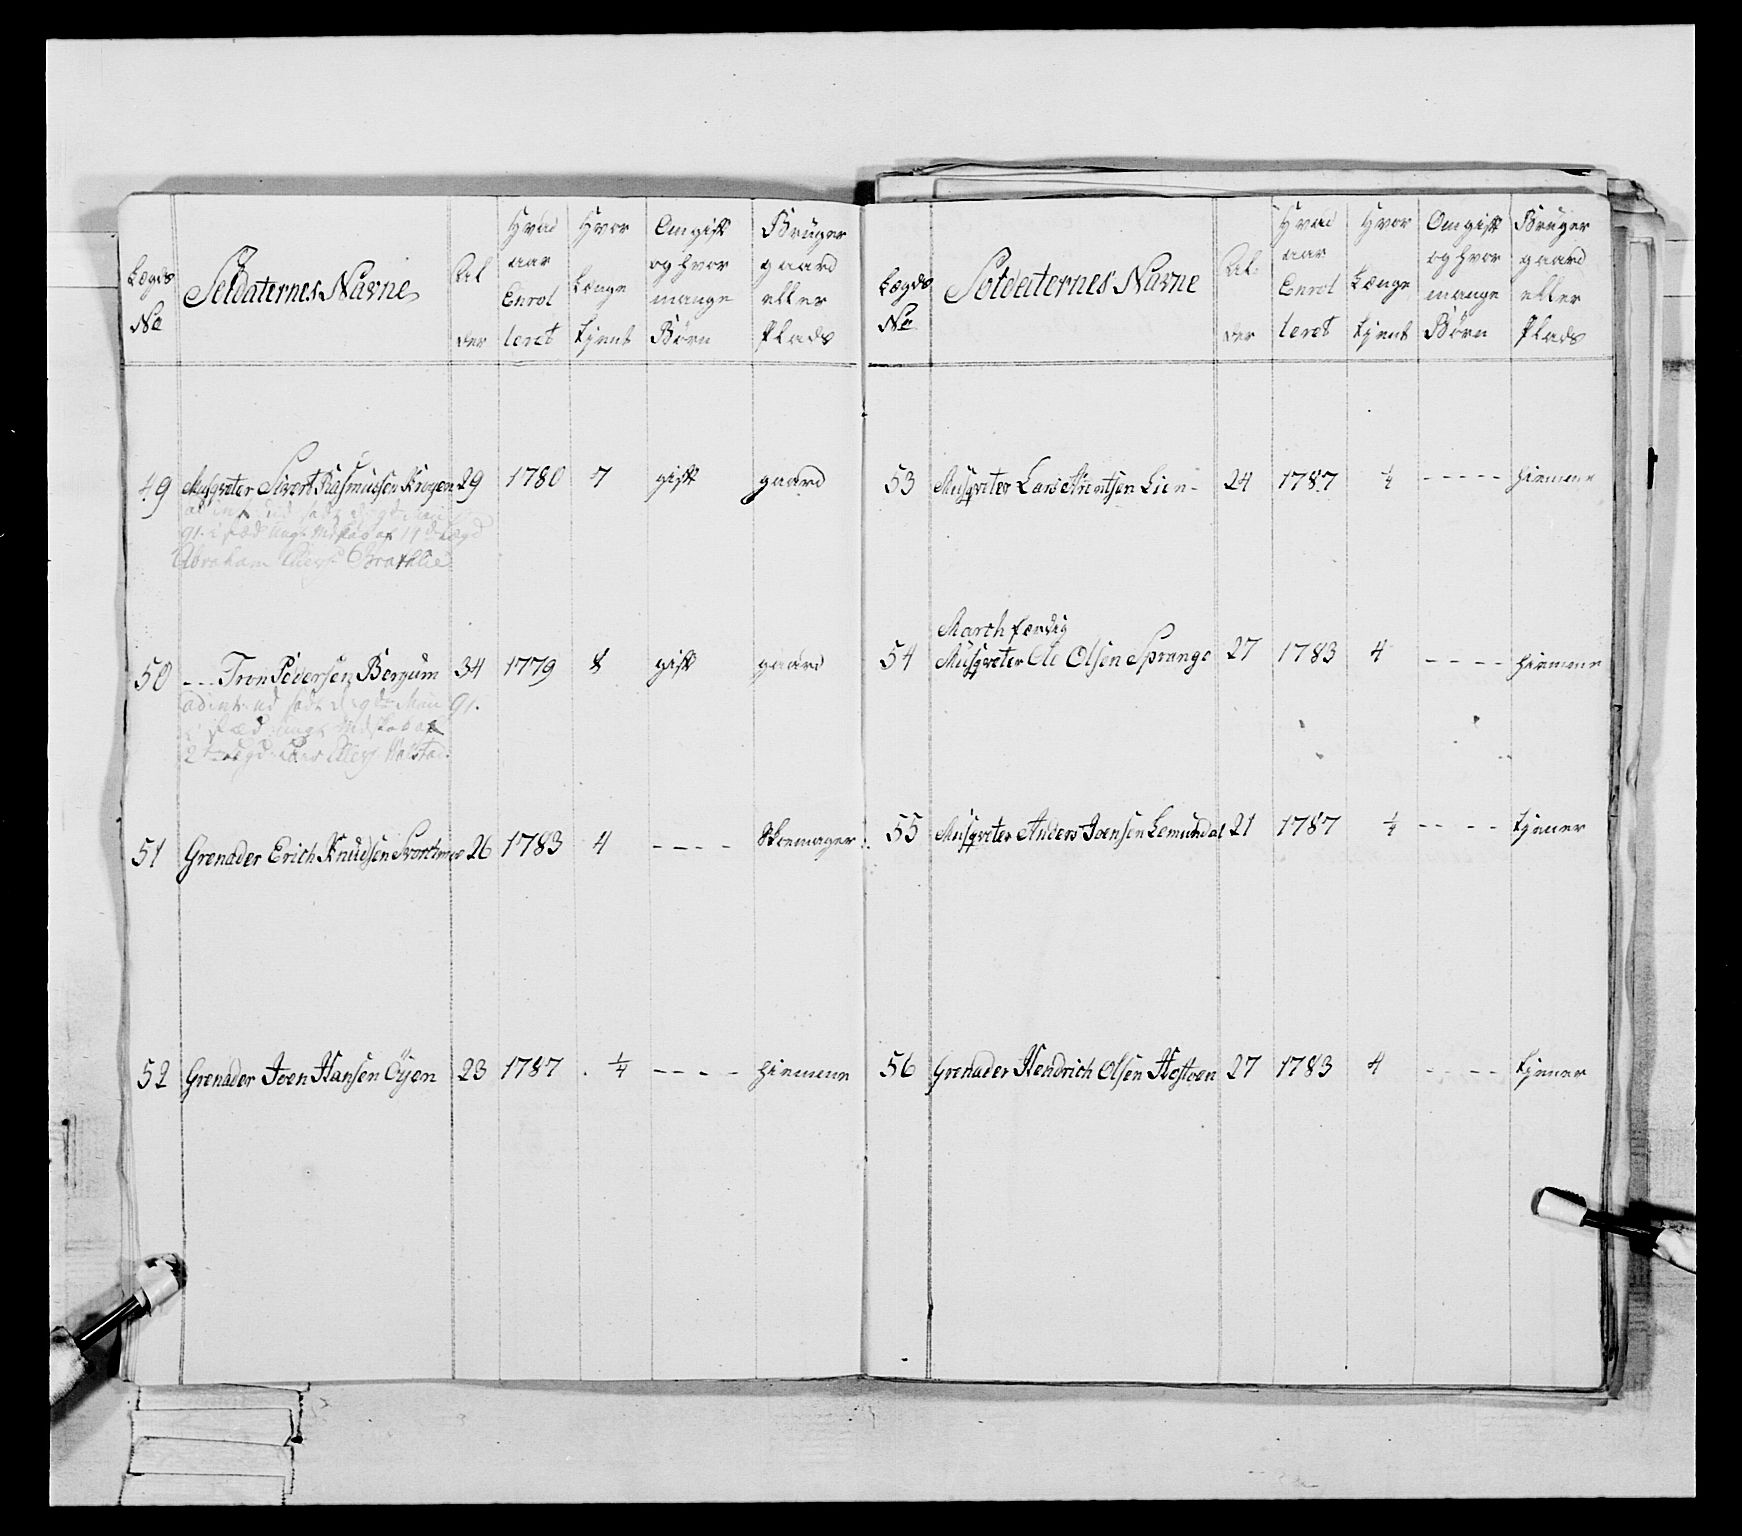 Lægds No | Soldaternes Navne | Al der | Hvad aar Enrol leret | Hvor Længe tjent | Om gift og hvor mange Børn | Bruger gaard eller Plads
49 | Musqveter Sivert Rasmussen Krogen | 29 | 1780 | 7 | gift | gaard
91. i sted
Abraham Bratlie
50 | --- Tron Pedersen Bergum | 34 | 1779 | 8 | gift | gaard
Maii 91.
i sted
51 | Grenader Erich Knudsen Svortmoe | 26 | 1783 | 4 | ---- | Skoemager
52 | Grenader Joen Hansen Öyen | 23 | 1787 | ¼ | ---- | hiemme
Lægds No | Soldaternes Navne | Al der | Hvad aar Enrol leret | Hvor Længe tjent | Om gift og hvor mange Børn | Bruger gaard eller Plads
53 | Musqveter Lars Arentsen Lien | 24 | 1787 | ¼ | ----- | hiemme
March færdig
54 | Musqveter Ole Olsen Sprange | 27 | 1783 | 4 | ---- | hiemme
55 | Musqveter Anders Joensen Lemundal | 21 | 1787 | ¼ | ---- | tjener
56 | Grenader Hendrich Olsen | 27 | 1783 | 4 | ---- | tjener